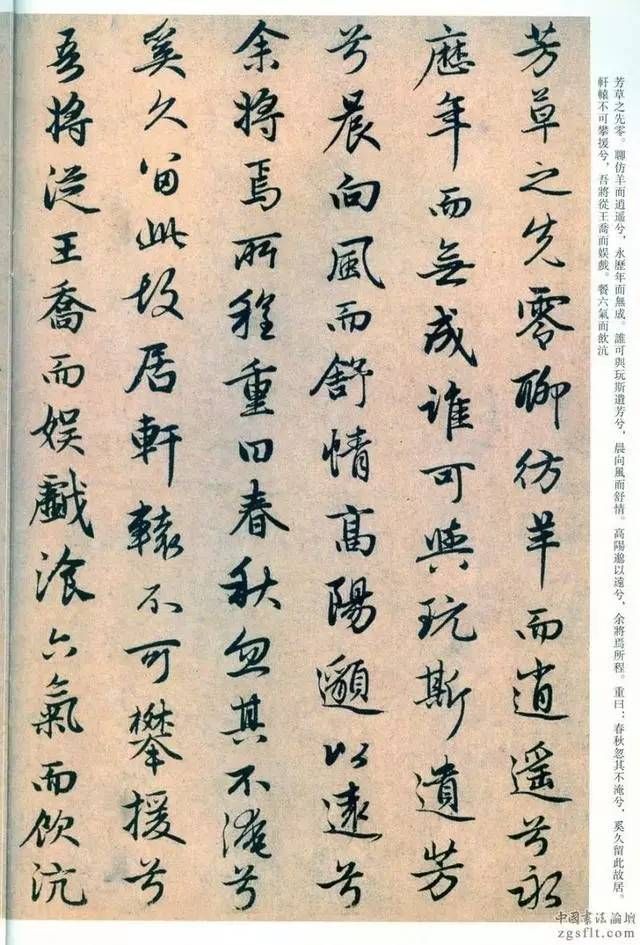 芳草之先零。聊仿羊而逍遥兮，永歷年而無成。誰可與玩斯遺芳兮，晨向風而舒情。高陽邈以遠兮，余將焉所程。重曰：春秋忽其不淹兮，奚久留此故居。
軒轅不可攀援兮，吾將從王喬而娛戲。餐六氣而飲沆
芳草之先零聊彷羊而逍遥兮永
歷年而無成誰可與玩斯遺芳
兮晨向風而舒情高陽邈以遠兮
余將焉所程重曰春秋忽其不淹兮
奚久留此故居軒轅不可攀援兮
吾將從王喬而娛戲湌六氣而飲沆
中國書法論壇
zgsflt.com